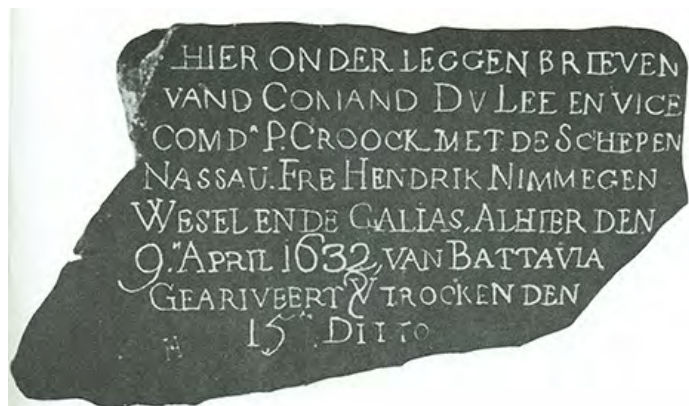 HIER ONDER LEGGEN BRIEVEN
VAND COMAND DV LEE EN VICE
COMDR P. CROOCK MET DE SCHEPEN
NASSAU. FRE HENDRIK NIMMEGEN
WESEL ENDE GALIAS, ALHIER DEN
9.N APRIL 1632, VAN BATTAVIA
GEARIVEERT & VTROCKEN DEN
15EN DITTO